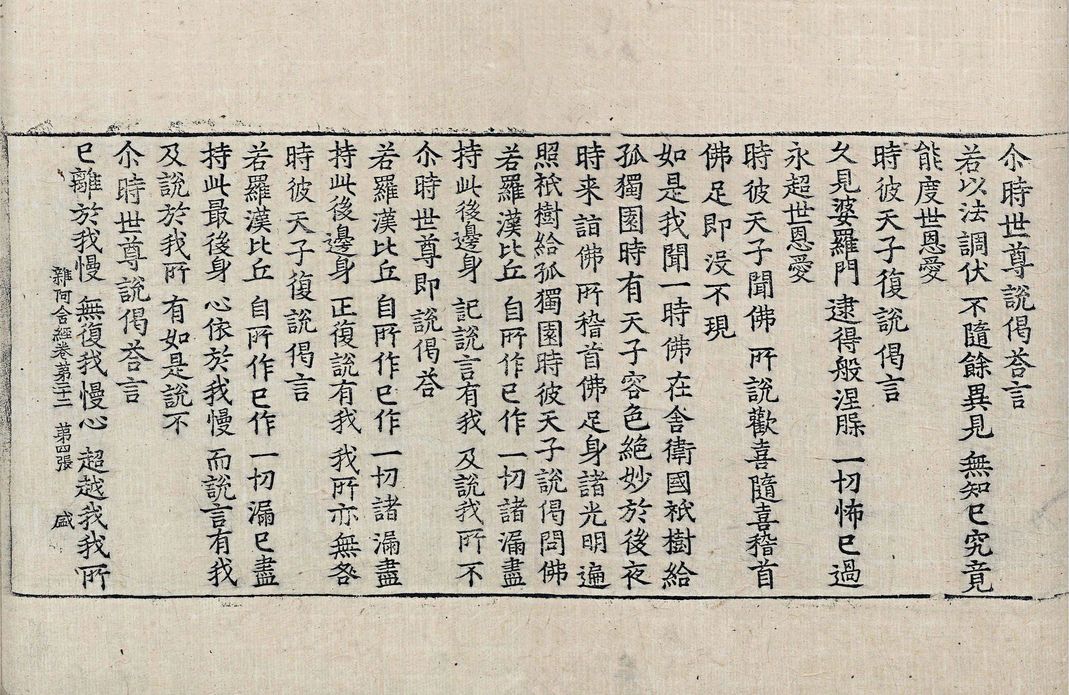 尒時世尊說偈荅言
若以法調伏 不隨餘異見 無知已究竟
能度世恩愛
時彼天子復說偈言
久見婆羅門 逮得般涅槃 一切怖已過
永超世恩愛
時彼天子聞佛所說歡喜隨喜稽首
佛足即沒不現
如是我聞一時佛在舍衛國祇樹給
孤獨園時有天子容色絶妙於後夜
時来詣佛所稽首佛足身諸光明遍
照祇樹給孤獨園時彼天子說偈問佛
若羅漢比丘 自所作已作 一切諸漏盡
持此後邊身 記說言有我 及說我所不
尒時世尊即說偈荅
若羅漢比丘 自所作已作 一切諸漏盡
持此後邊身 正復說有我 我所亦無咎
時彼天子復說偈言
若羅漢比丘 自所作已作 一切漏已盡
持此最後身 心依於我慢 而說言有我
及說於我所 有如是說不
尒時世尊說偈荅言
已離於我慢 無復我慢心 超越我我所
雜阿含經卷第二十二 第四張 盛